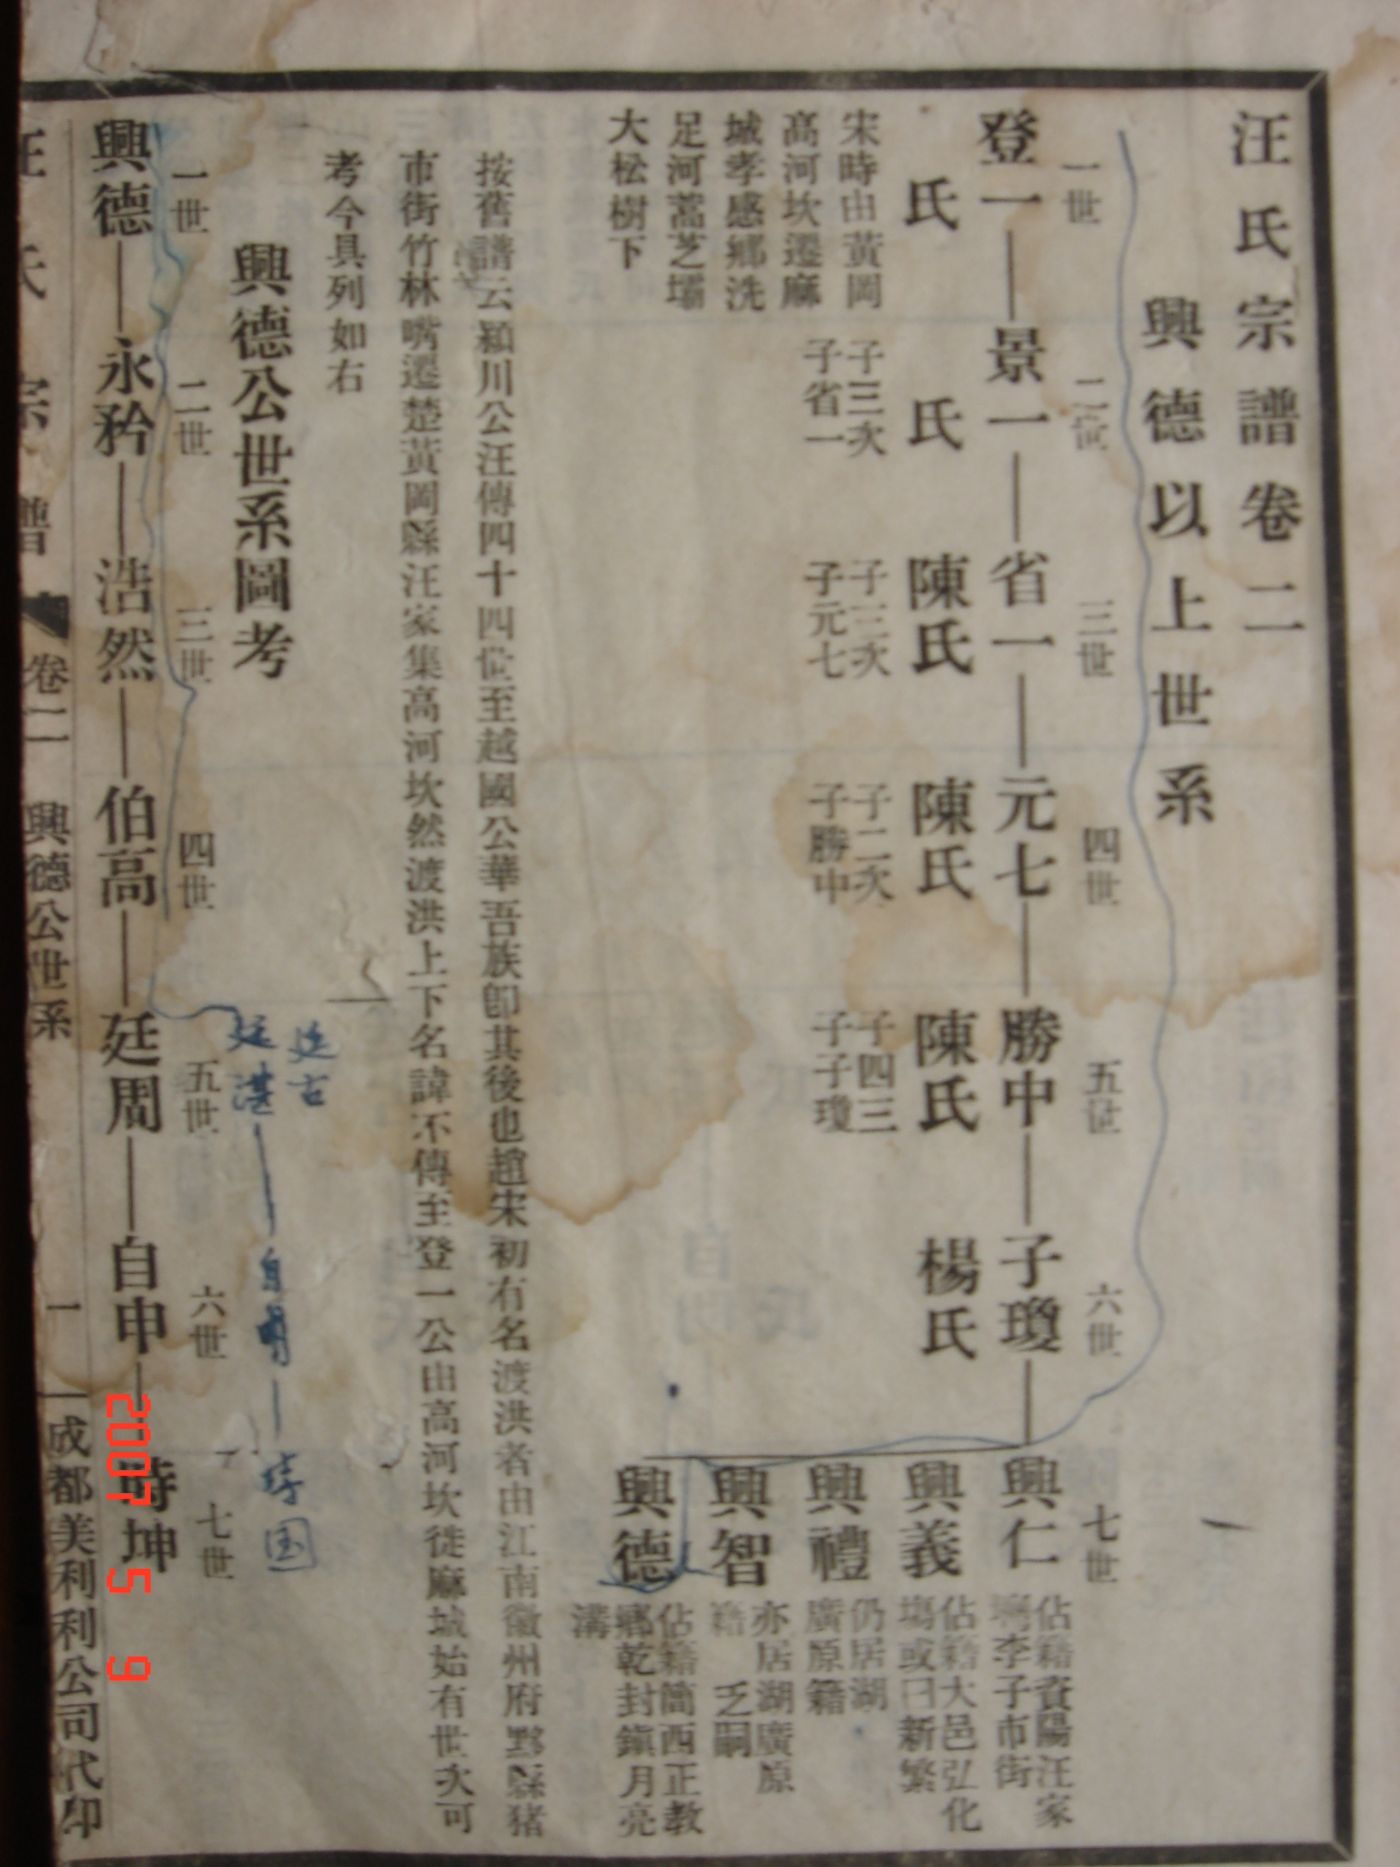 汪氏宗譜卷二
興德以上世系
一世 二世 三世 四世 五世 六世 七世
登一 景一 省一 元七 勝中 子瓊 興仁
佔籍資陽汪家
李子市街
氏 氏 陳氏 陳氏 陳氏 楊氏 興義
佔籍大邑弘化
塲或曰新繁
宋時由黃岡
高河坎遷麻
城孝感鄉洗
足河蒿芝壩
大松樹下
子三次
子省一
子二次
子元七
子二次
子勝中
子四三
子子瓊
興禮
仍居湖
廣原籍
興智
亦居湖廣原
籍 乏嗣
興德
佔籍簡西正教
鄉乾封鎮月亮
溝
按舊譜云潁川公汪傳四十四世至越國公華吾族卽其後也趙宋初有名渡洪者由江南徽州府黟縣猪
市街竹林嘴遷楚黃岡縣汪家集高河坎然渡洪上下名諱不傳至登一公由高河坎徙麻城始有世次可
考今具列如右
興德公世系圖考
廷古
廷湛 自明 琦国
一世 二世 三世 四世 五世 六世 七世
興德 永矜 浩然 伯高 廷周 自申 時坤
汪氏宗譜 卷二 興德公世系 一 成都美利利公司代印
2007 5 9